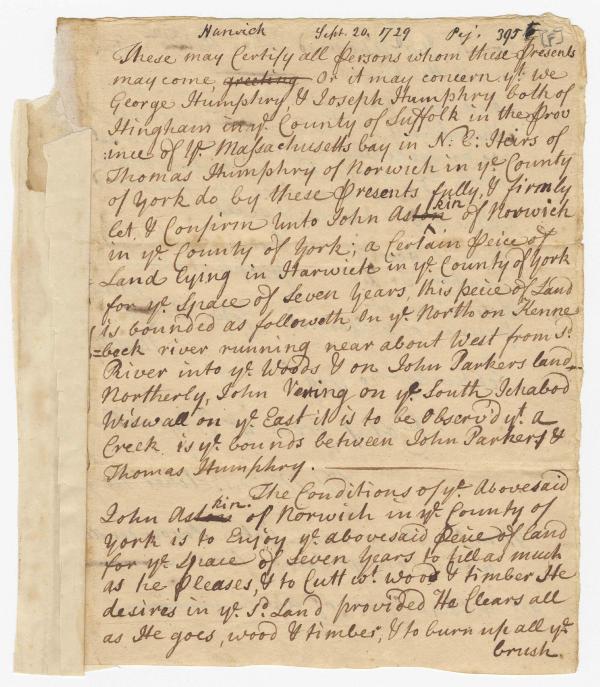 Harwich Sept. 20. 1729 Pej. 395 [F]
These may Certify all Persons whom these Presents
may come, greeting Or it may concern, yt. we
George Humphry, & Joseph Humphry both of
Hingham in ye. County of Suffolk in the Prov
ince of ye. Massachusetts bay in N: E: Heirs of
Thomas Humphry of Norwich in ye. County
of York do by these Presents fully, & firmly
let, & Confirm Unto John Astkin of Norwich
in ye. County of York; a Certain Peice of
Land Lying in Harwich in ye. County of York
for ye. Space of Seven Years, this peice of Land
is bounded as followeth On ye. North on Kenne
=beck river running near about West from sd.
River into ye. Woods & on John Parkers land
Northerly, John Vering on ye. South Ichabod
Wiswall on ye. East it is to be Observ'd yt. a
Creek is ye. bounds between John Parkers &
Thomas Humphry.
The Conditions of ye. Abovesaid
John Astkin. of Norwich in ye. County of
York is to Enjoy ye. abovesaid Peice of land
for ye. Space of Seven Years to till as much
as he Pleases, & to Cutt wt. wood & timber He
desires in ye. sd. Land provided He Clears all
as He goes, wood & timber, & to burn up all ye.
brush